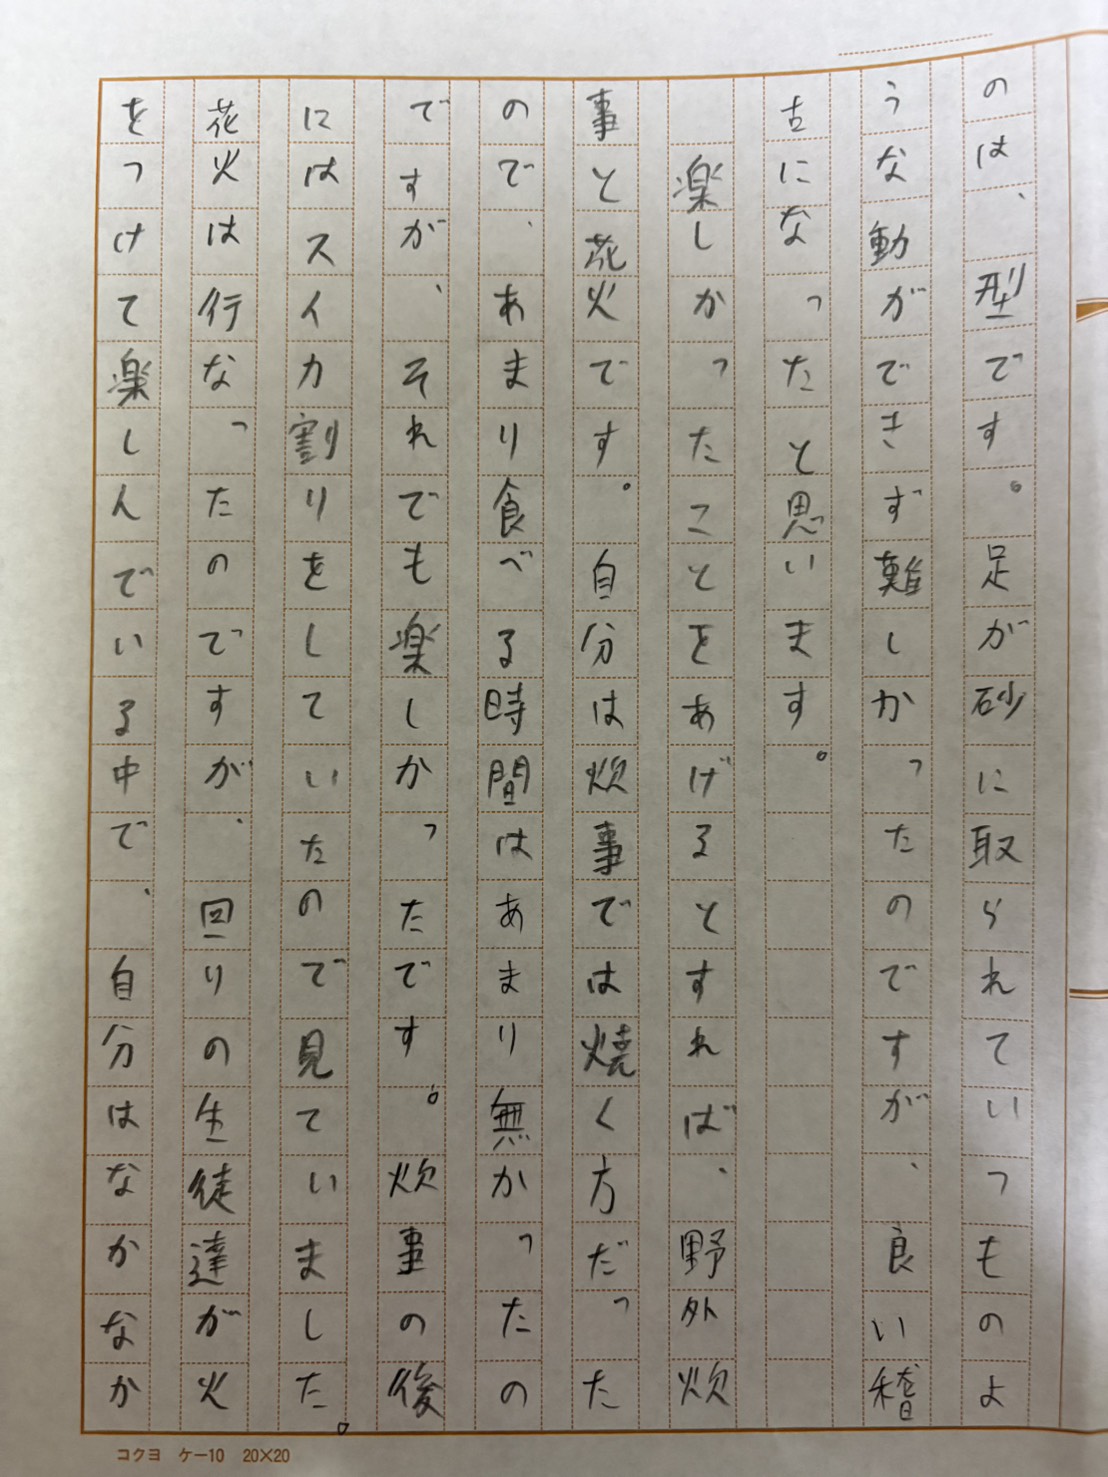 のは、型です。足が砂に取られていつものよ
うな動ができず難しかったのですが、良い稽
古になったと思います。
楽しかったことをあげるとすれば、野外炊
事と花火です。自分は炊事では焼く方だった
ので、あまり食べる時間はあまり無かったの
ですが、それでも楽しかったです。炊事の後
にはスイカ割りをしていたので見ていました。
花火は行なったのですが、回りの生徒達が火
をつけて楽しんでいる中で、自分はなかなか
コクヨ ケー10 20×20